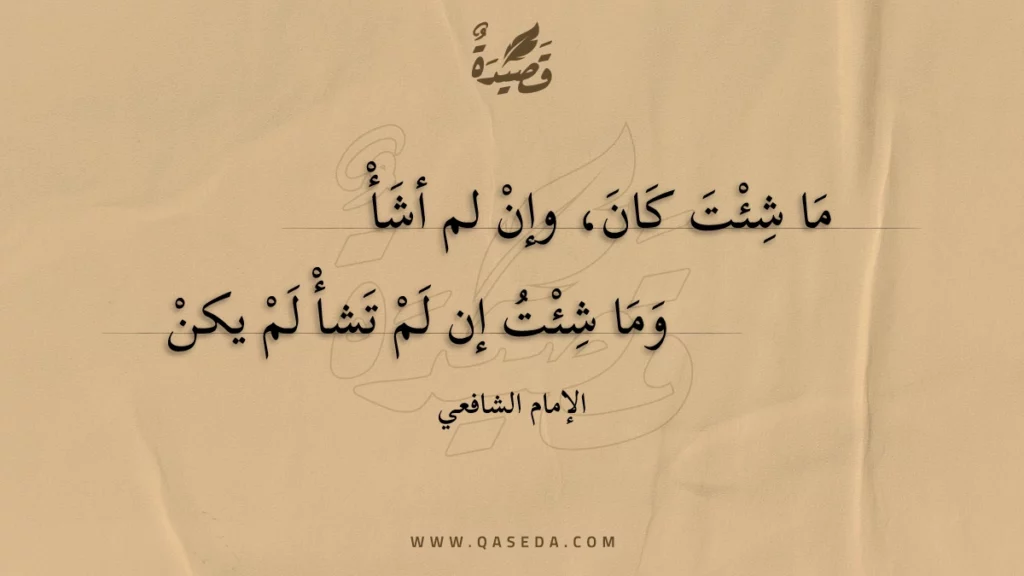 قَصِيدَةٌ
مَا شِئْتَ كَانَ، وإنْ لم أشَأْ
وَمَا شِئْتُ إن لَمْ تَشأْ لَمْ يكنْ
الإمام الشافعي
WWW.QASEDA.COM